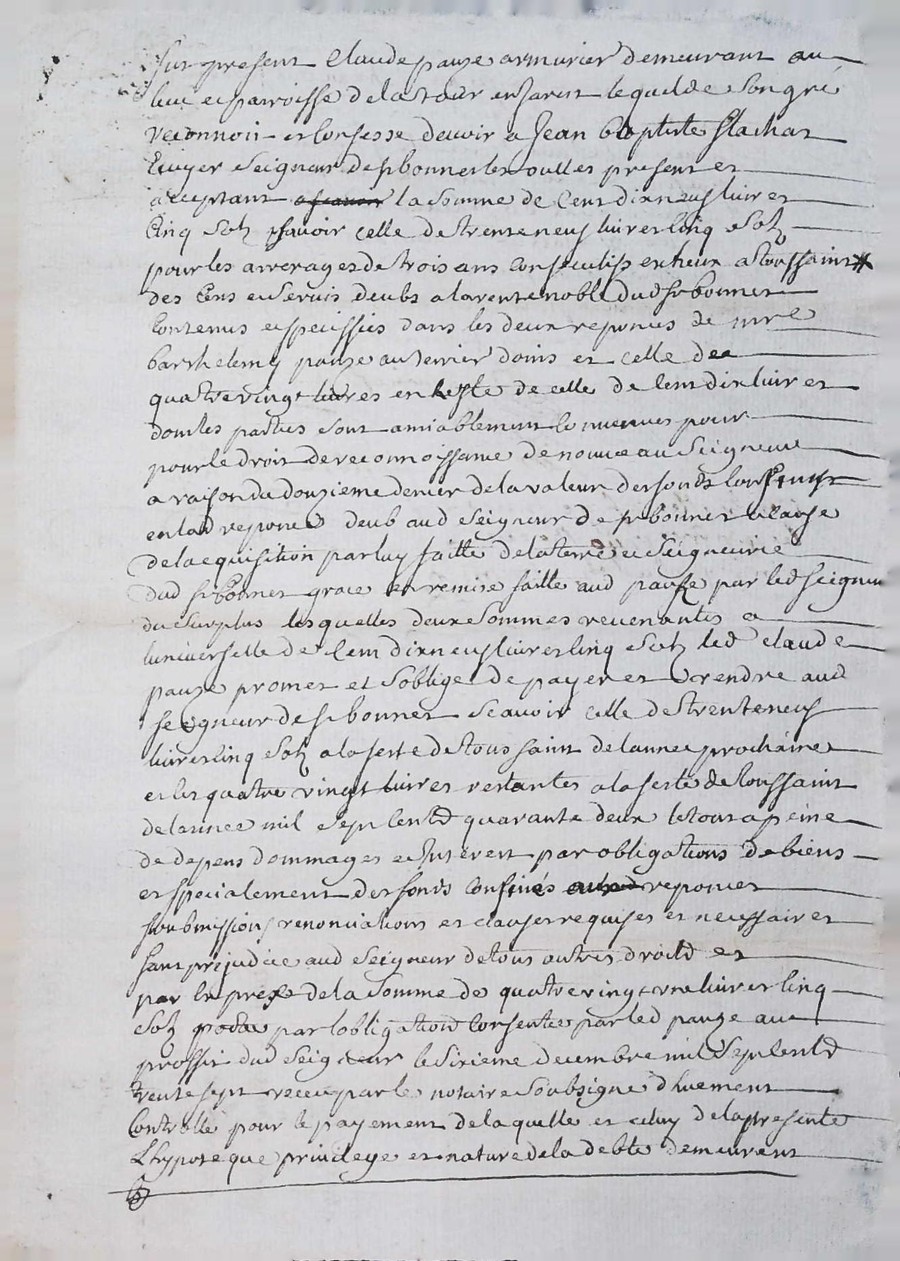 fut present Claude pauze armurier demeurant au
lieu et parroisse de la tour en Jarest lequel de Son gré
reconnoit et Confesse devoir a Jean baptiste flachat
Ecuyer Seigneur de st bonnet les oulles present et
acceptant la Somme de Cent dix neuf livres
Cinq Solz scavoir celle de trente neuf livres Cinq Solz
pour les arrerages de trois ans Consecutifs echeux a toussaint
des Cens et Servis deubs a la rente noble dud st bonnet
Contenus et speciffiés dans les deux reponces de mre
barthelemy pauze au terrier doins et celle de
quatre vingt livres en Reste de celle de Cent dix livres
dont les parties Sont amiablement Convenues pour
pour le droit de reconnoissance de nouveau Seigneur
a raison du douzieme denier de la valeur des fonds
en lad reponce deub aud Seigneur de st bonnet a cause
de lacquisition par luy faitte de la terre et Seigneurie
dud st bonnet grace et remise faitte aud pauze par led Seigneur
du Surplus lesquelles deux Sommes revenantes a
luniverselle de Cent dix neuf livres Cinq Solz led Claude
pauze promet et Soblige de payer et rendre aud
Seigneur de st bonnet Scavoir celle de trente neuf
livres Cinq Solz a la feste de toussaint de lannee prochaine
et les quatre vingt livres restantes a la feste de toussaint
de lannee mil Sept Cent quarante deux le tout a peine
de depens dommages et Interest par obligations de biens
et specialement des fonds Confinés reponces
soubmissions renonciations et clauses requises et necessaires
sans prejudice aud Seigneur de tous autres droitd et
par de la Somme de quatre vingt une livres Cinq
Solz par lobligation Consentie par led pauze au
proffit dud Seigneur le Sixieme decembre mil Sept Cent
trente sept receu par le notaire Soubsigné dhuement
Controllé pour le payement de laquelle et celuy de la presente
Lhypoteque privilege et nature de la debte demeurent